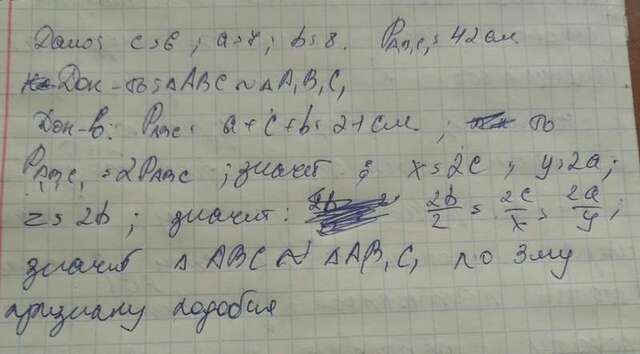 Дано: c=6; a=7; b=8. P_A₁B₁C₁=42см
Док-ть: △ABC ~ △A₁B₁C₁
Док-во: P_ABC = a+c+b=21см; то
P_A₁B₁C₁ = 2P_ABC; значит: x=2c; y=2a;
z=2b; значит: 2b/z = 2c/x = 2a/y;
значит △ABC ~ △A₁B₁C₁ по 3му
признаку подобия